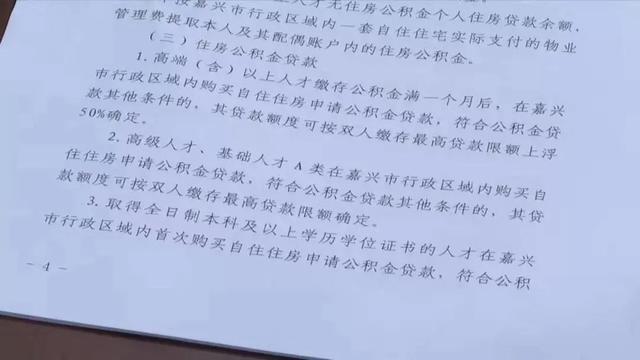 人才无住房公积金个人住房贷款余额，
年按嘉兴市行政区域内一套自住住宅实际支付的物业
管理费提取本人及其配偶账户内的住房公积金。
（三）住房公积金贷款
1.高端（含）以上人才缴存公积金满一个月后，在嘉兴
市行政区域内购买自住住房申请公积金贷款，符合公积金贷
款其他条件的，其贷款额度可按双人缴存最高贷款限额上浮
50%确定。
2.高级人才、基础人才A类在嘉兴市行政区域内购买自
住住房申请公积金贷款，符合公积金贷款其他条件的，其贷
款额度可按双人缴存最高贷款限额确定。
3.取得全日制本科及以上学历学位证书的人才在嘉兴
市行政区域内首次购买自住住房申请公积金贷款，符合公积
— 4 —